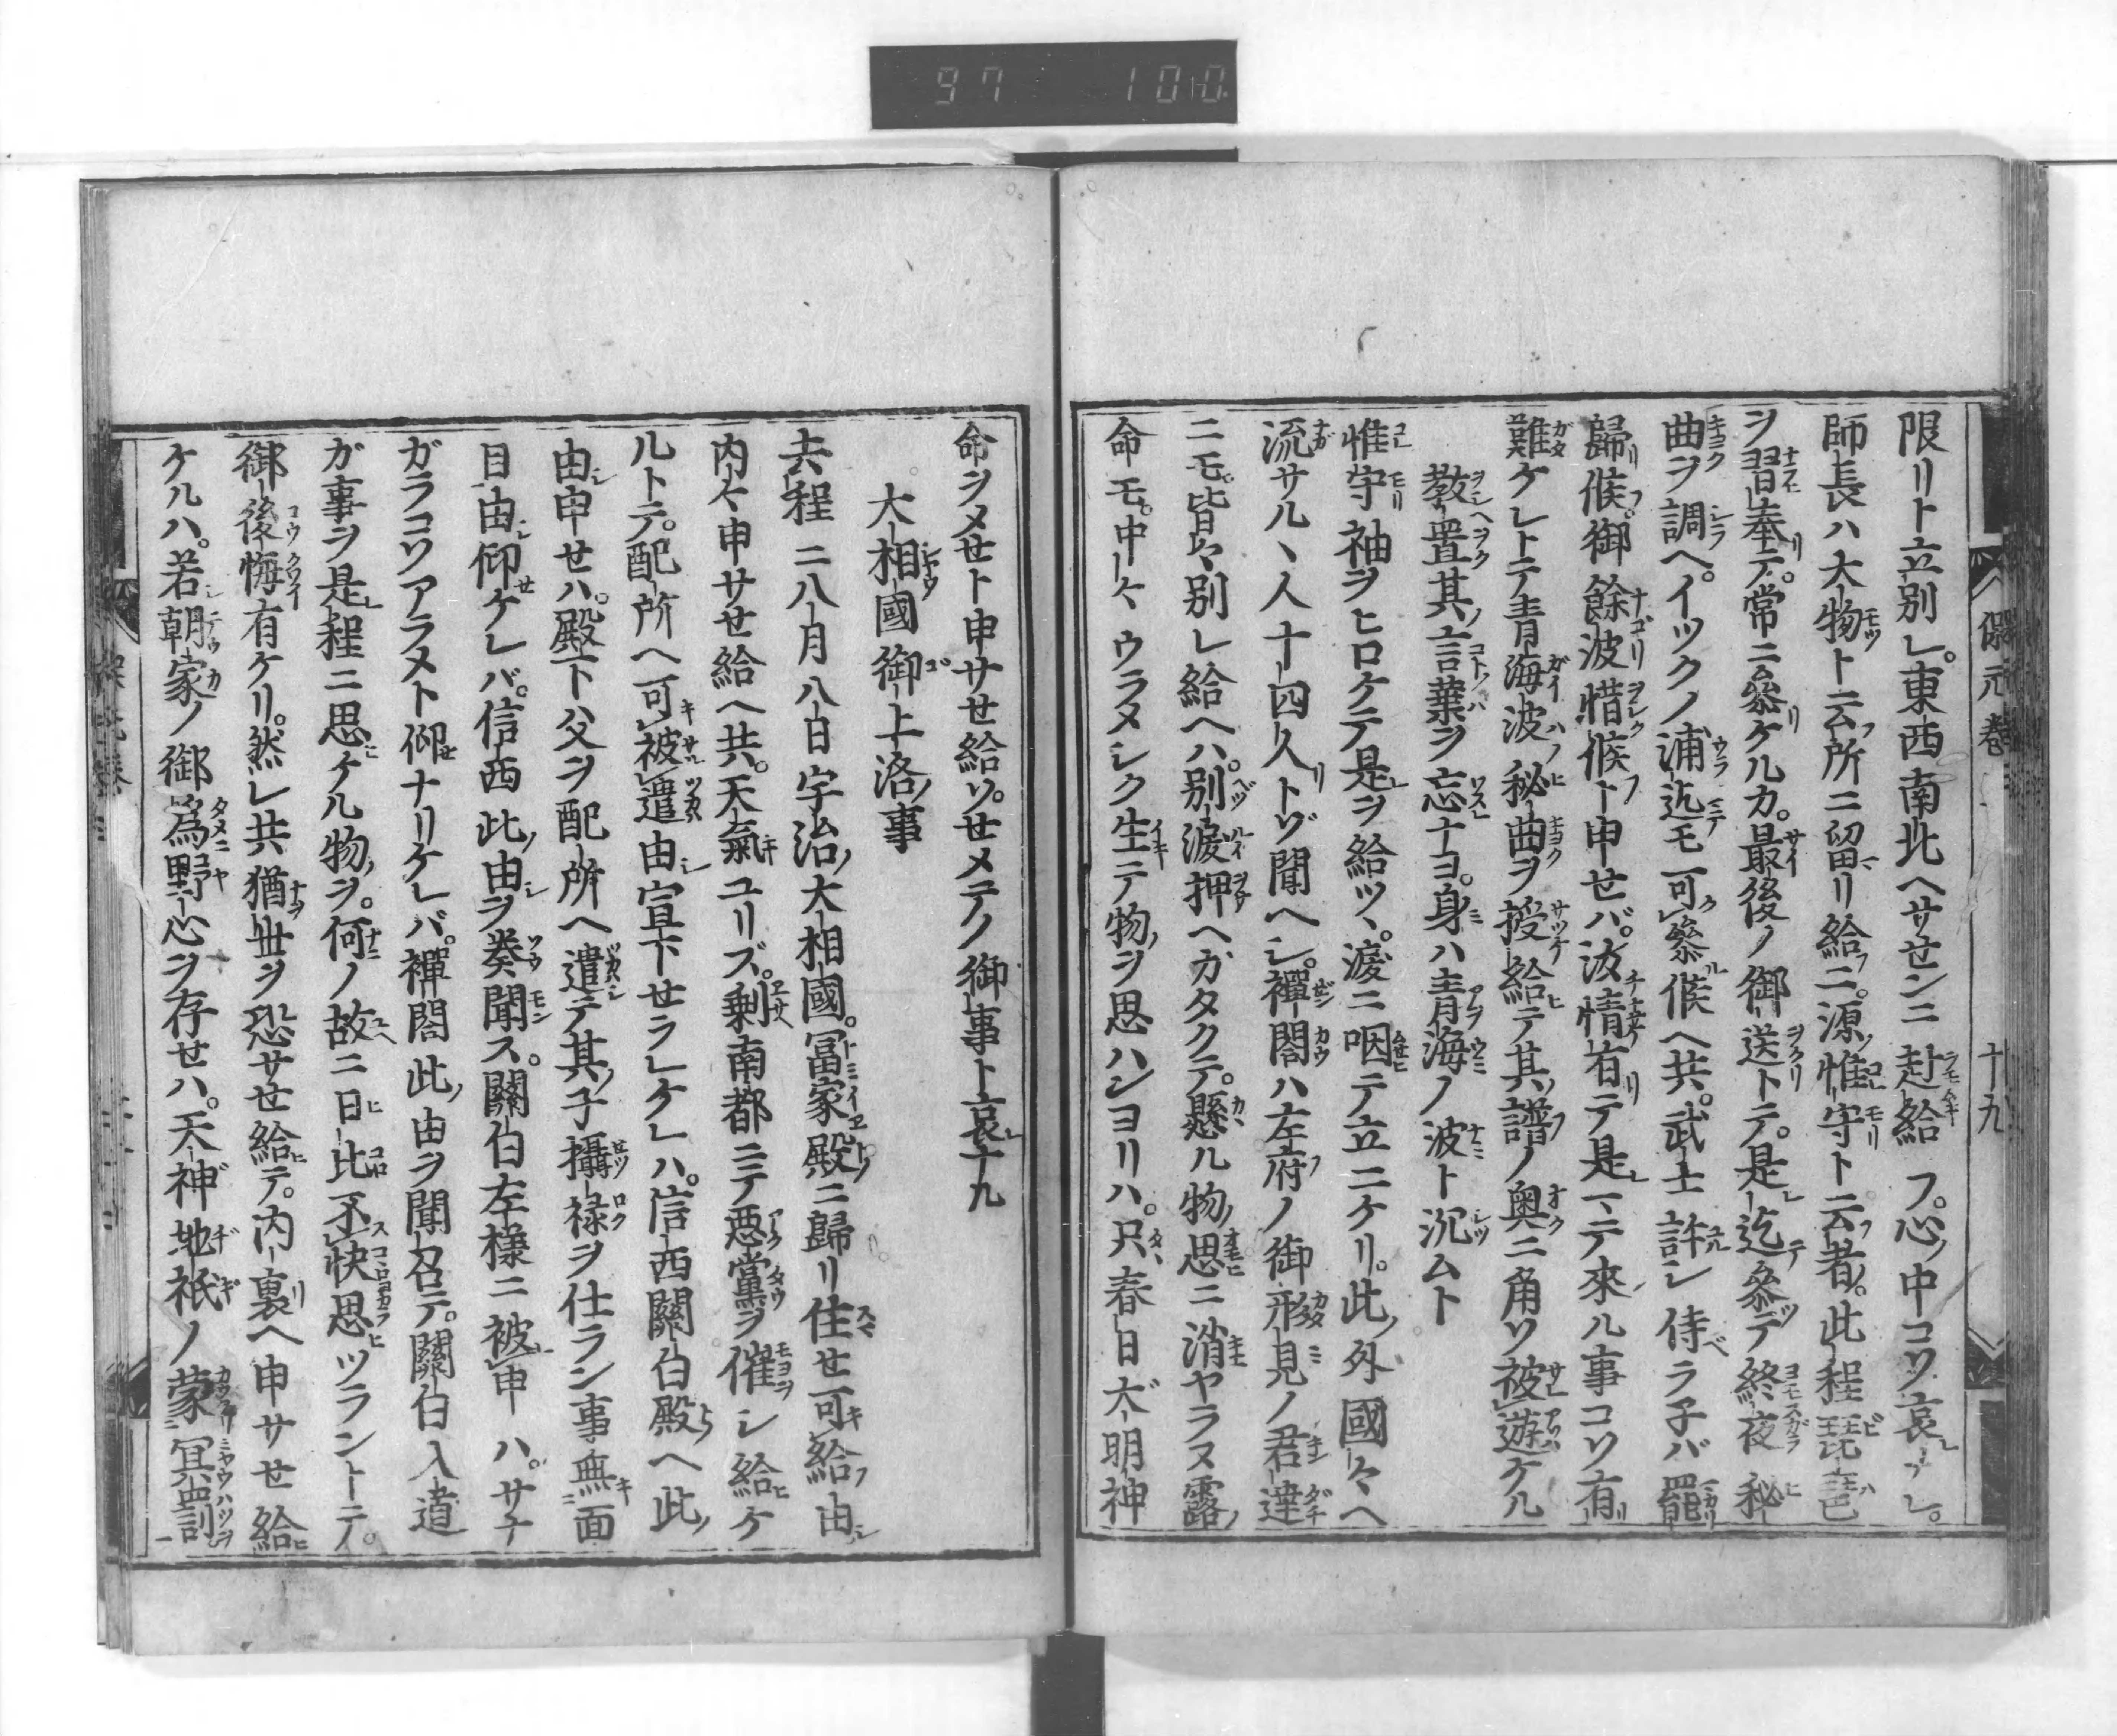 97 1010.
保元巻 十九
限リト立別レ。東西南北ヘサセンニ赴給フ。心ノ中コソ哀ナレ。
師長ハ大物ト云所ニ留リ給ニ。源惟守ト云者。此程琵琶
ヲ習奉テ。常ニ參ケルカ。最後ノ御送トテ。是迄參テ終夜秘
曲ヲ調ヘ。イツクノ浦迄モ可參候ヘ共。武士許シ侍ラ子バ罷
歸候。御餘波惜候ト申せバ。汝情有テ是マテ來ル事コソ有
難ケレトテ青海波ノ秘曲ヲ授給テ其譜ノ奥ニ角ソ被遊ケル
教置其言葉ヲ忘ナヨ。身ハ青海ノ波ト沉ムト
惟守袖ヲヒロケテ是ヲ給ツヽ。涙ニ咽テ立ニケリ。此外國々ヘ
流サルヽ人十四人トゾ聞ヘシ。禪閤ハ左府ノ御形見ノ君達
ニモ皆々別レ給ヘハ。別涙押ヘカタクテ。懸ル物思ニ消ヤラヌ露
命モ。中々ウラメシク生テ物ヲ思ハンヨリハ。只春日大明神
命ヲメせト申サせ給ソ。せメテノ御事ト哀ナル
大相國御上洛事
去程ニ八月八日宇治大相國。冨家殿ニ歸リ住せ可給由
内々申サせ給ヘ共。天氣ユリズ。剰南都ニテ悪黨ヲ催シ給ケ
ルトテ。配所ヘ可被遣由宣下せラレケレハ。信西關白殿ヘ此
由申せハ。殿下父ヲ配所ヘ遣テ其子攝禄ヲ仕ラン事無面
目由仰ケレバ。信西此由ヲ奏聞ス。關白左樣ニ被申ハ。サナ
ガラコソアラメト仰ナリケレバ。禪閤此由ヲ聞召テ。關白入道
ガ事ヲ是程ニ思ケル物ヲ。何ノ故ニ日比不快思ツラントテ。
御後悔有ケリ。然レ共猶世ヲ恐サせ給テ。内裏ヘ申サせ給
ケルハ。若朝家ノ御爲野心ヲ存せハ。天神地祇ノ蒙冥罰